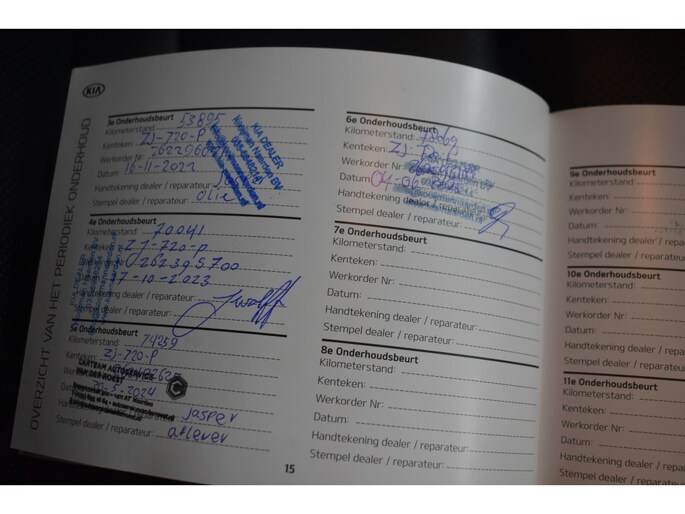 KIA
OVERZICHT VAN HET PERIODIEK ONDERHOUD
3e Onderhoudsbeurt
Kilometerstand: 53895
Kenteken: ZJ-720-P
Werkorder Nr:
Datum: 16-11-2022
Handtekening dealer / reparateur:
Stempel dealer / reparateur: Olie
KIA DEALER
4e Onderhoudsbeurt
Kilometerstand: 70041
Kenteken: ZJ-720-P
Werkorder Nr: 0262395700
Datum: 17-10-2023
Handtekening dealer / reparateur:
Stempel dealer / reparateur:
KIA DEALER
5e Onderhoudsbeurt
Kilometerstand: 74259
Kenteken: ZJ-720-P
CARTEAM AUTOSERVICE
VAN DER HORST
-5-2024
Jasper
Stempel dealer / reparateur:
15
6e Onderhoudsbeurt
Kilometerstand: 78069
Kenteken: ZJ-720-P
Werkorder Nr:
Datum: 04-06
Handtekening dealer / reparateur:
Stempel dealer / reparateur:
7e Onderhoudsbeurt
Kilometerstand:
Kenteken:
Werkorder Nr:
Datum:
Handtekening dealer / reparateur:
Stempel dealer / reparateur:
8e Onderhoudsbeurt
Kilometerstand:
Kenteken:
Werkorder Nr:
Datum:
Handtekening dealer / reparateur:
Stempel dealer / reparateur:
9e Onderhoudsbeurt
Kilometerstand:
Kenteken:
Werkorder Nr:
Datum:
Handtekening dealer / rep
Stempel dealer / reparateu
10e Onderhoudsbeurt
Kilometerstand:
Kenteken:
Werkorder Nr:
Datum:
Handtekening dealer / rep
Stempel dealer / reparate
11e Onderhoudsbeurt
Kilometerstand:
Kenteken:
Werkorder Nr:
Datum:
Handtekening dealer / re
Stempel dealer / repara